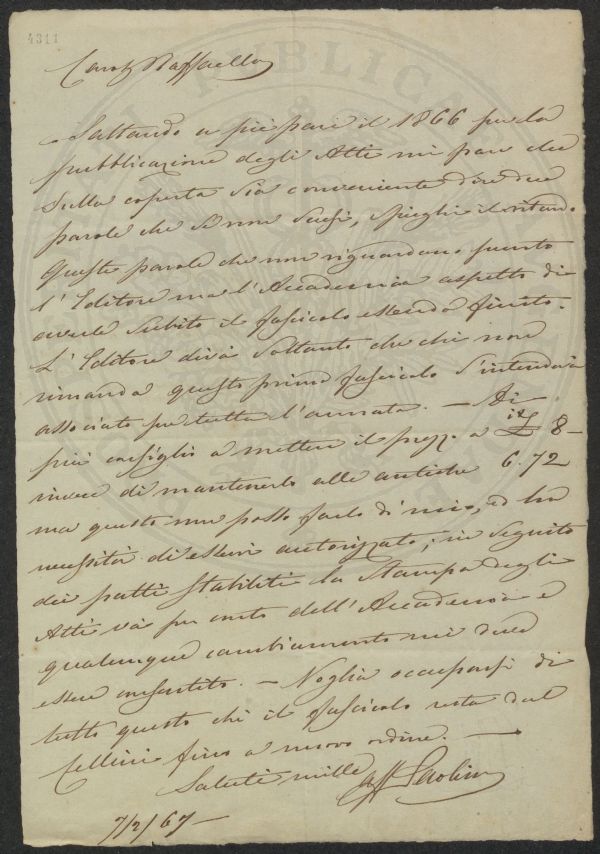 4311
Raffaello
Saltando a piè pari il 1866 per la
pubblicazione degli Atti mi pare che
sulla coperta sia conveniente dire due
parole che se non scusi, spieghi il ritardo.
Queste parole che non riguardano punto
l'Editore ma l'Accademia aspetto di
averle subito il fascicolo essendo finito.
L'Editore dirà soltanto che chi non
rimanda questo primo fascicolo s'intenderà
associato per tutta l'annata. — Di
più consiglio a mettere il prezzo a it £ 8 —
invece di mantenerlo alle antiche 6.72
ma questo non posso farlo di mio, ed ho
necessità di esservi autorizzato; in seguito
dei patti stabiliti la stampa degli
Atti va per conto dell'Accademia e
qualunque cambiamento mi deve
esser consentito. — Voglia occuparsi di
tutto questo chè il fascicolo resta dal
Cellini fino a nuovo ordine. —
Saluti mille
7/2/67 —